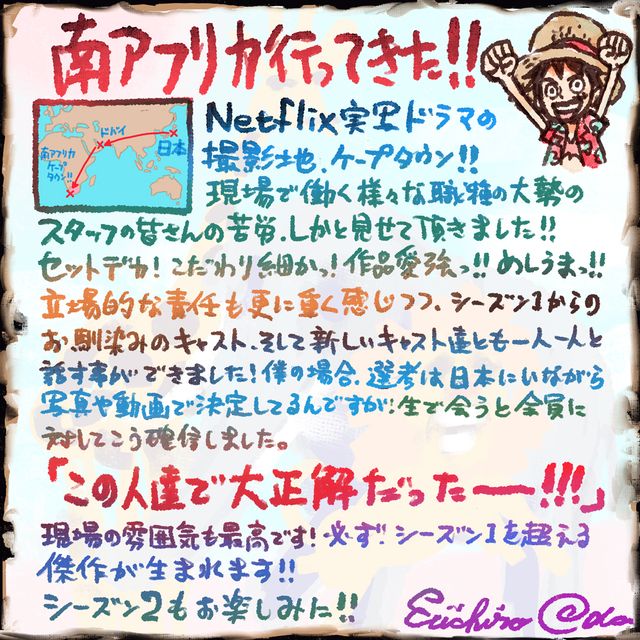 南アフリカ行ってきた!!
ドバイ
日本
南アフリカ
ケープ
タウン!!
Netflix実写ドラマの
撮影地、ケープタウン!!
現場で働く様々な職種の大勢の
スタッフの皆さんの苦労、しかと見せて頂きました!!
セットデカ!こだわり細かっ!作品愛強っ!!めしうまっ!!
立場的な責任も更に重く感じつつ、シーズン1からの
お馴染みのキャスト、そして新しいキャスト達とも一人一人と
話す事ができました!僕の場合、選考は日本にいながら
写真や動画で決定してるんですが、生で会うと全員に
対してこう確信しました。
「この人達で大正解だったーー!!!」
現場の雰囲気も最高です!必ず!シーズン1を超える
傑作が生まれます!!
シーズン2もお楽しみに!!
Eiichiro Oda